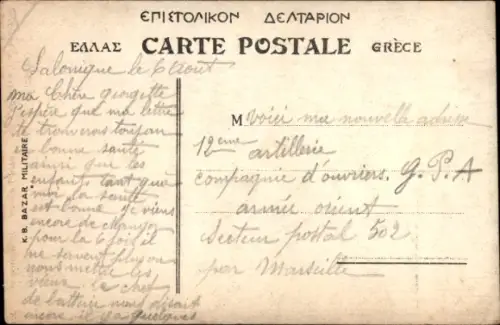 ΕΠΙΣΤΟΛΙΚΟΝ ΔΕΛΤΑΡΙΟΝ
ΕΛΛΑΣ CARTE POSTALE GRÈCE
Salonique le 6 Aout
ma Chère georgette
J'espère que ma lettre
te trouveras toujours
bonne santé
ainsi que les
enfants tant que
moi la santé
est bonne je viens
encore de changer
pour la 6 fois il
me servent plus
nous les
vieux le chef
de batterie nous disant
encore il a quelques
M Voici ma nouvelle adresse
12eme artillerie
compagnie d'ouvriers. G. P. A
armée orient
Secteur postal 502
par Marseille
K. B. BAZAR MILITAIRE